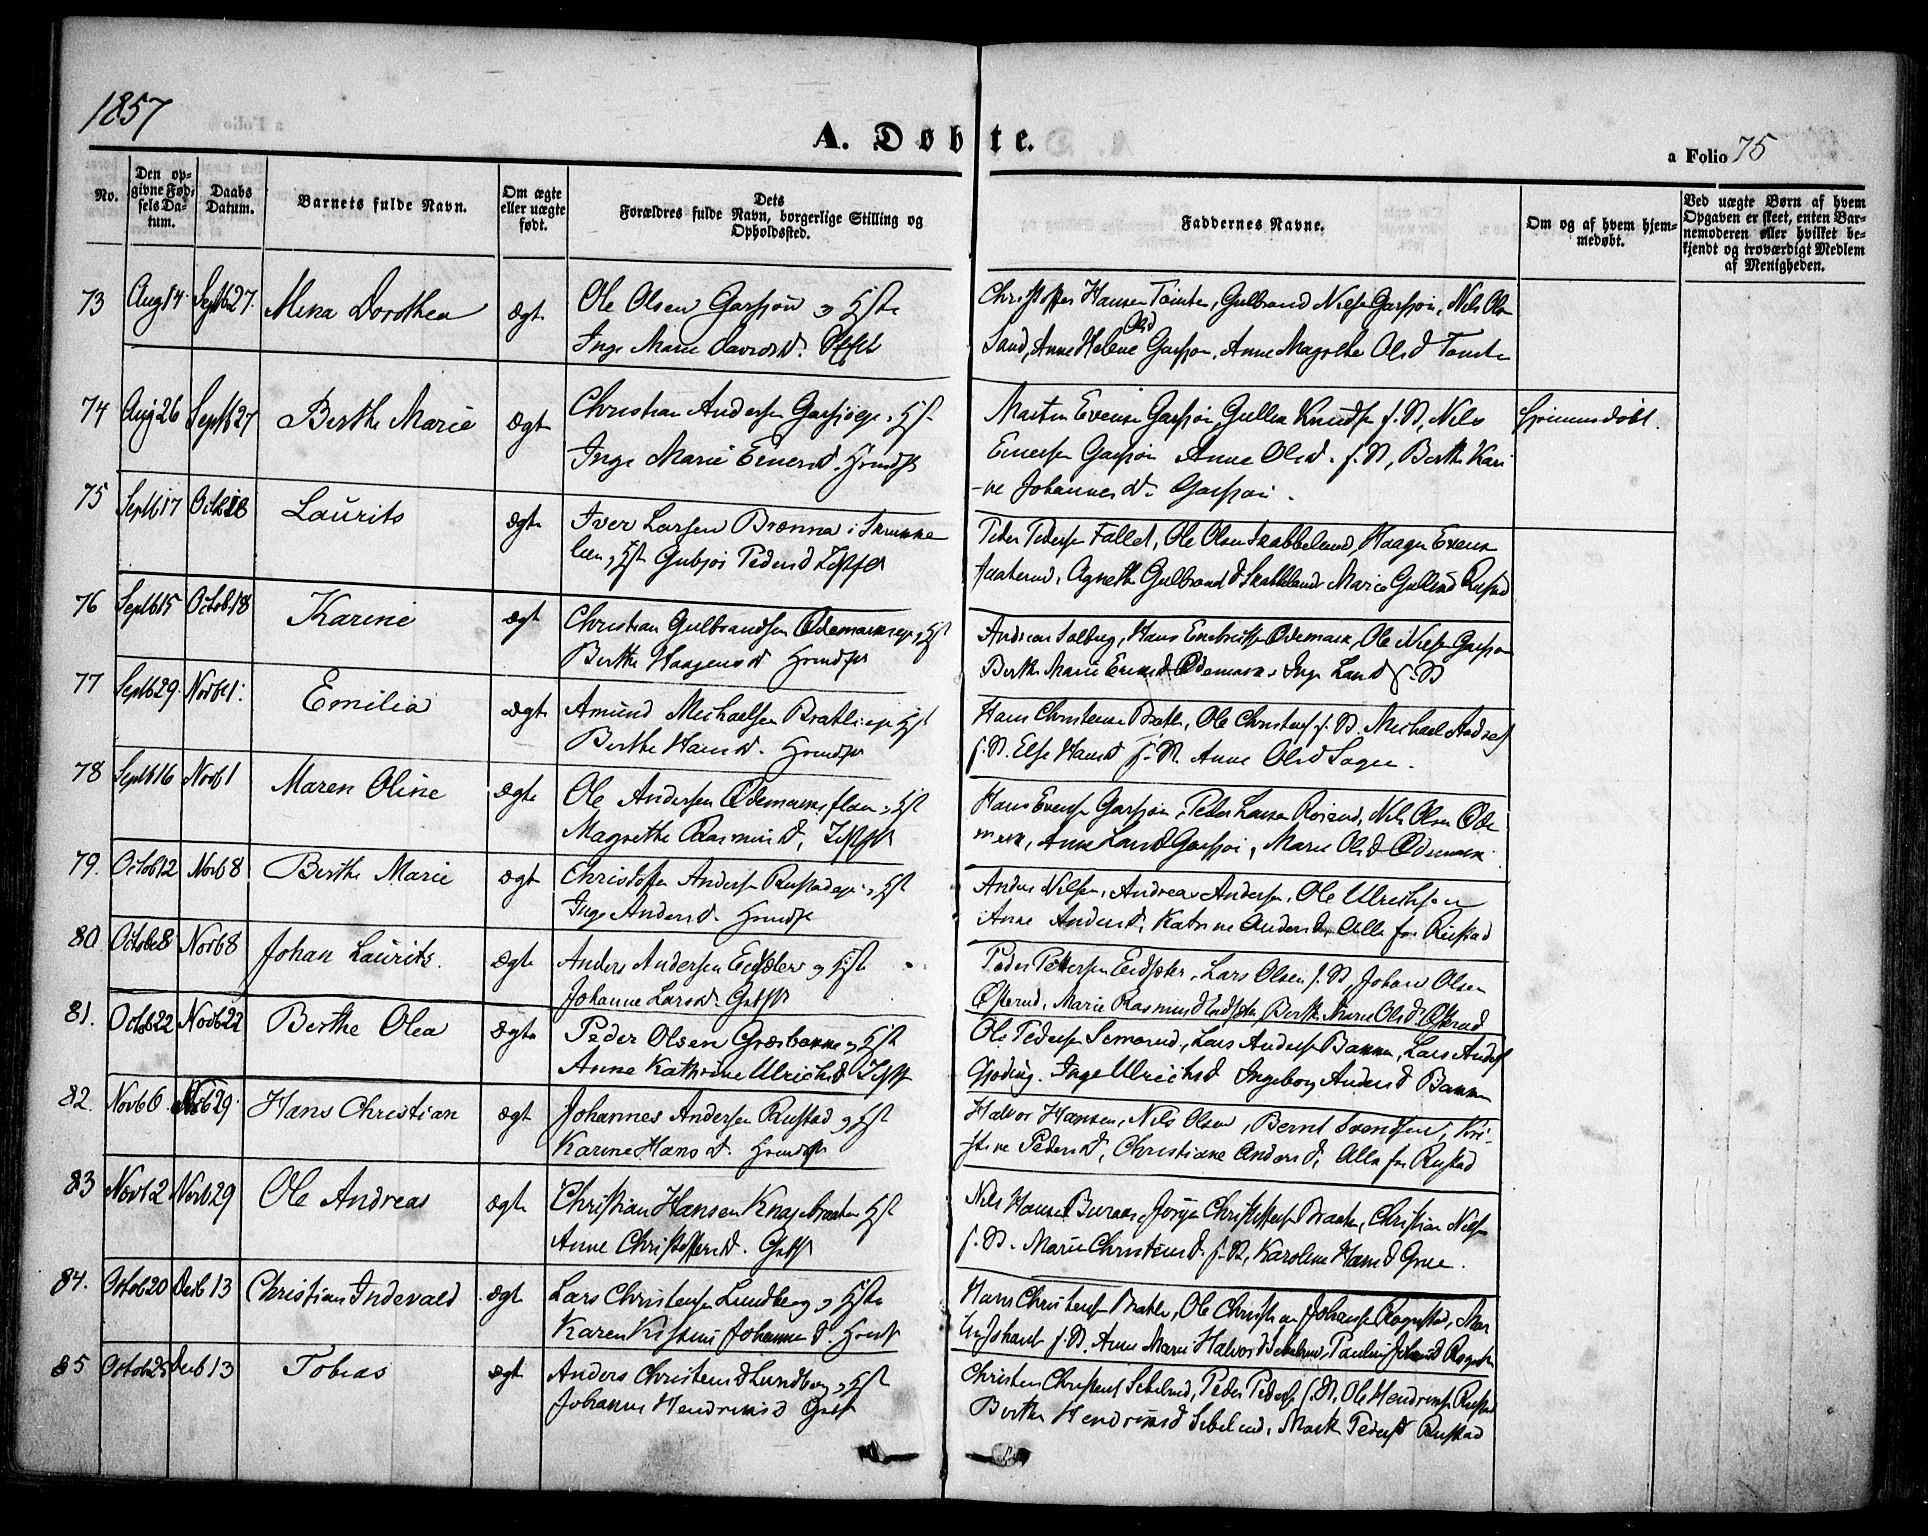 1857
A. Døbte.
a Folio 75
No.
Den op-
givne Fød-
sels Da-
tum.
Daabs
Datum.
Barnets fulde Navn.
Om ægte
eller uægte
født.
Dets
Forældres fulde Navn, borgerlige Stilling og
Opholdssted.
Faddernes Navne.
Om og af hvem hjem-
medøbt.
Ved uægte Børn af hvem
Opgaven er skeet, enten Bar-
nemoderen eller hvilket be-
kjendt og troværdigt Medlem
af Menigheden.
73 Aug 14 Septb 27. Mina Dorothea ægte Ole Olsen Garsjøen og Hst
Inge Marie Davidsd.
Christoffer Hansen Tomten, Gulbrand Nilsen Garsjøen, Nils Olsen
Sand, Anne Helene Olsd Garsjøen, Anne Magrethe Olsd Tomten
74 Aug 26 Septb 27 Berthe Marie ægte Christian Andersen Garsjøeje og Hst
Inge Marie Evensd. Huusmd
Martin Evensen Garsjøen, Gullik Knudsen f. St, Nils
Evensen Garsjøen Anne Olsd. f. St, Berthe Kari
-ne Johannesd. Garsjøen. Hjemmedøbt.
75 Septb 17 Octob 18 Laurits ægte Iver Larsen Brænna i Skrukke
lien og Hst Gubjør Pedersd
Peder Pedersen Fallet, Ole Olsen Skabbelund, Haagen Evensen
Agnethe Gulbrandsd Skabbelund Marie Gulbrd Rustad
76 Septb 15 Octob 18 Karine ægte Christian Gulbrandsen Ødemarkseje og Hst
Berthe Haagensd
Andreas Solberg, Hans Engebretsen Ødemark, Ole Nilsen Garsjøen
Berthe Marie Ericsd Ødemark, Inge Larsd f. St
77 Septb 29. Novb 1. Emilia ægte Amund Michaelsen Bratlieje og Hst
Berthe Hansd.
Hans Christensen Bratlie, Ole Christens. f. St. Michael Andreas
f. St. Else Hansd f. St. Anne Olsd Sagen.
78 Septb 16 Novb 1 Maren Oline ægte Ole Andersen Ødemarksflaen og Hst
Magrethe Rasmusd,
Hans Evensen Garsjøen, Peder Larsen Rosend, Nils Olsen Øde
mark, Anne Larsd Garsjøen, Marie Olsd Ødemark
79. Octob 12 Novb 8 Berthe Marie ægte Christoffer Andersen Rustadeje og Hst
Inge Andersd.
Anders Nilsen, Andreas Andersen, Ole Ulrichsen
Anne Andersd, Katrine Andersd, Alle fra Rustad
80 Octob 8 Novb 8 Johan Laurits. ægte Anders Andersen Eidsæter og Hst
Johanne Larsd.
Peder Pettersen Eidsæter, Lars Olsen f. St, Johan Olsen
Østerud, Marie Rasmusd Eidsæter, Berthe Marie Olsd Østerud
81. Octob 22 Novb 22 Berthe Olea ægte Peder Olsen Græsbonn og Hst
Anne Kathrine Ulrichsd
Ole Pedersen Semerud, Lars Andersen Bannen, Lars Anders
Gjøding. Inge Ulrichsd Ingeborg Andersd Bannen
82. Novb 6 Novb 29. Hans Christian ægt Johannes Andersen Rustad og Hst
Karine Hansd.
Halvor Hansen, Nils Olsen, Bernt Svendsen, Kri-
stine Pedersd, Christiane Andersd, Alle fra Rustad
83 Novb 12 Novb 29 Ole Andreas ægte Christian Hansen Knagebraaten Hst
Anne Christoffersd.
Nils Hansen Buraas, Jørgen Christoffersen Braaten, Christian Nilsen
f. St. Marie Christensd. f. St, Karoline Hansd Grue.
84. Octob 20 Decb 13 Christian Indevald ægt Lars Christensen Lundberg og Hst
Karen Kristine Johannesd.
Hans Christensen Bratlie, Ole Christiansen, Johannes Rognstad, Mar
f. St. Anne Marie Halvorsd Sebelrud, Pauline Johansd Rogstad
85 Octob 25 Decb 13 Tobias ægt Anders Christensen Lundberg og Hst
Johanne Hendriksd
Christen Christens Sebelrud, Peder Peders. f. St, Ole Hendriksen Rustad
Berthe Hendriksd Sebelrud, Marthe Pedersd Rustad